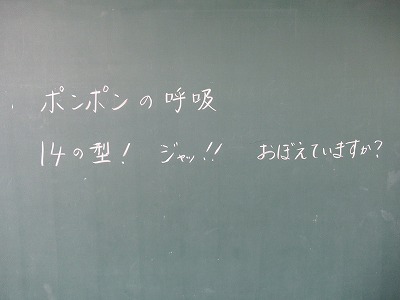 ポンポンの呼吸
14の型! ジャッ!! おぼえていますか?